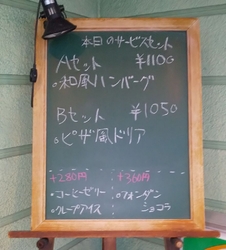 本日のサービスセット
Aセット ¥1100
○和風ハンバーグ
Bセット ¥1050
○ピザ風ドリア
+280円 +350円
・コーヒーゼリー ・フォンダン
ショコラ
・クレープアイス